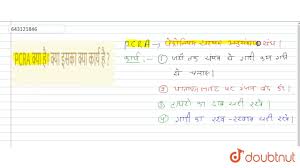 643121846
PCRA क्या है? क्या इसका क्या कार्य है ?
PCRA → पेट्रोलियम संरक्षण अनुसंधान संघ।
कार्य:- ① जहाँ तक संभव हो गाड़ी
से चलाए।
② पर गाड़ी बंद हो।
③ टायरों का दाब सही रखे।
④ गाड़ी का रख-रखाव सही रखे।
doubtnut